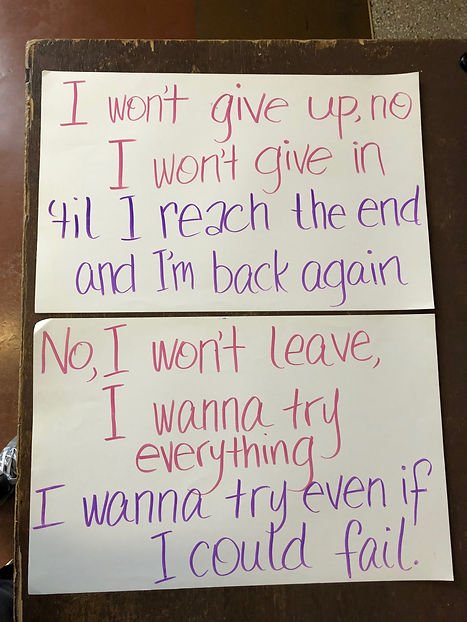 I won't give up, no
I won't give in
'til I reach the end
and I'm back again
No, I won't leave,
I wanna try
everything
I wanna try even if
I could fail.